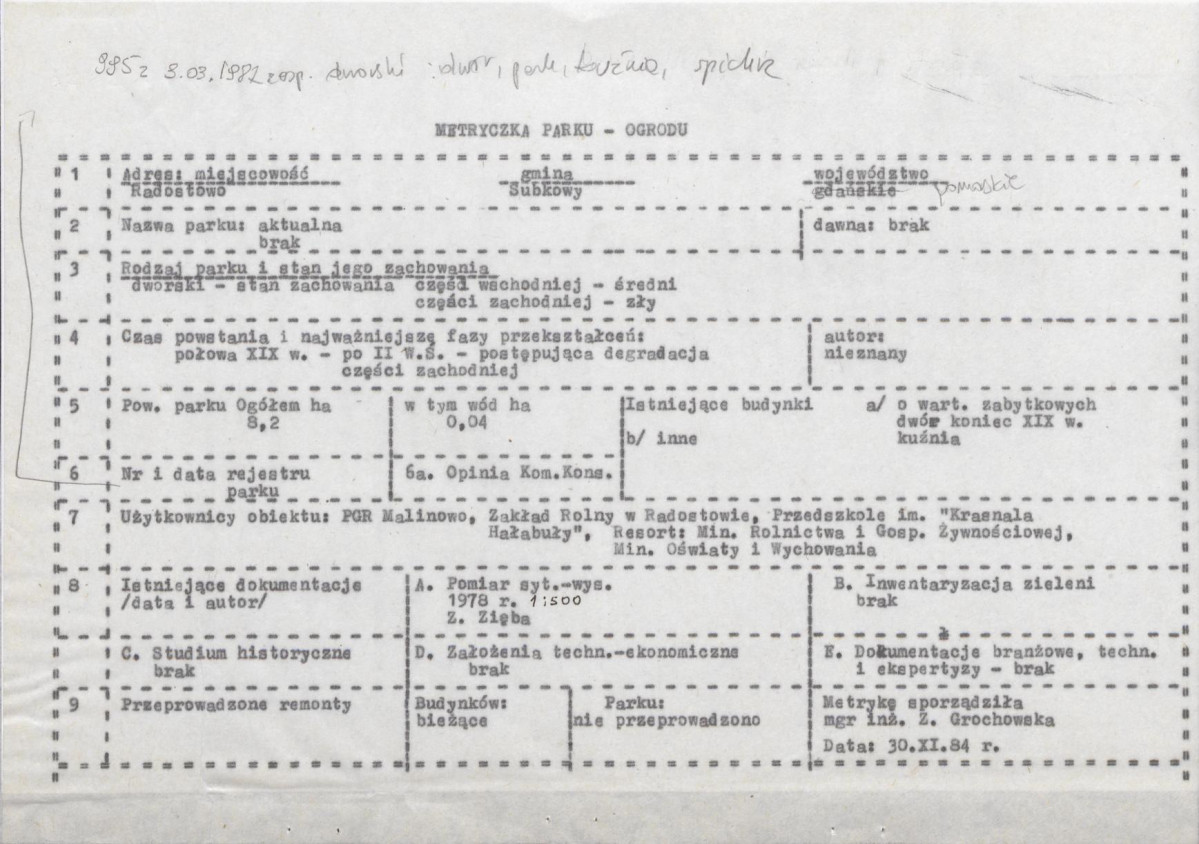 995 z 3.03.1982 zesp. dworski : dwór, park, kuźnia, spichrz
METRYCZKA PARKU - OGRODU
1 Adres: miejscowość gmina województwo
Radostowo Subkowy gdańskie pomorskie
2 Nazwa parku: aktualna dawna: brak
brak
3 Rodzaj parku i stan jego zachowania
dworski - stan zachowania część wschodniej - średni
części zachodniej - zły
4 Czas powstania i najważniejszę fazy przekształceń: autor:
połowa XIX w. - po II W.Ś. - postępująca degradacja nieznany
części zachodniej
5 Pow. parku Ogółem ha w tym wód ha Istniejące budynki a/ o wart. zabytkowych
8,2 0,04 dwór koniec XIX w.
b/ inne kuźnia
6 Nr i data rejestru 6a. Opinia Kom.Kons.
parku
7 Użytkownicy obiektu: PGR Malinowo, Zakład Rolny w Radostowie, Przedszkole im. "Krasnala
Hałabuły", Resort: Min. Rolnictwa i Gosp. Żywnościowej,
Min. Oświaty i Wychowania
8 Istniejące dokumentacje A. Pomiar syt.-wys. B. Inwentaryzacja zieleni
/data i autor/ 1978 r. 1:500 brak
Z. Zięba
C. Studium historyczne D. Założenia techn.-ekonomiczne E. Dokumentacje branżowe, techn.
brak brak i ekspertyzy - brak
9 Przeprowadzone remonty Budynków: Parku: Metrykę sporządziła
bieżące nie przeprowadzono mgr inż. Z. Grochowska
Data: 30.XI.84 r.